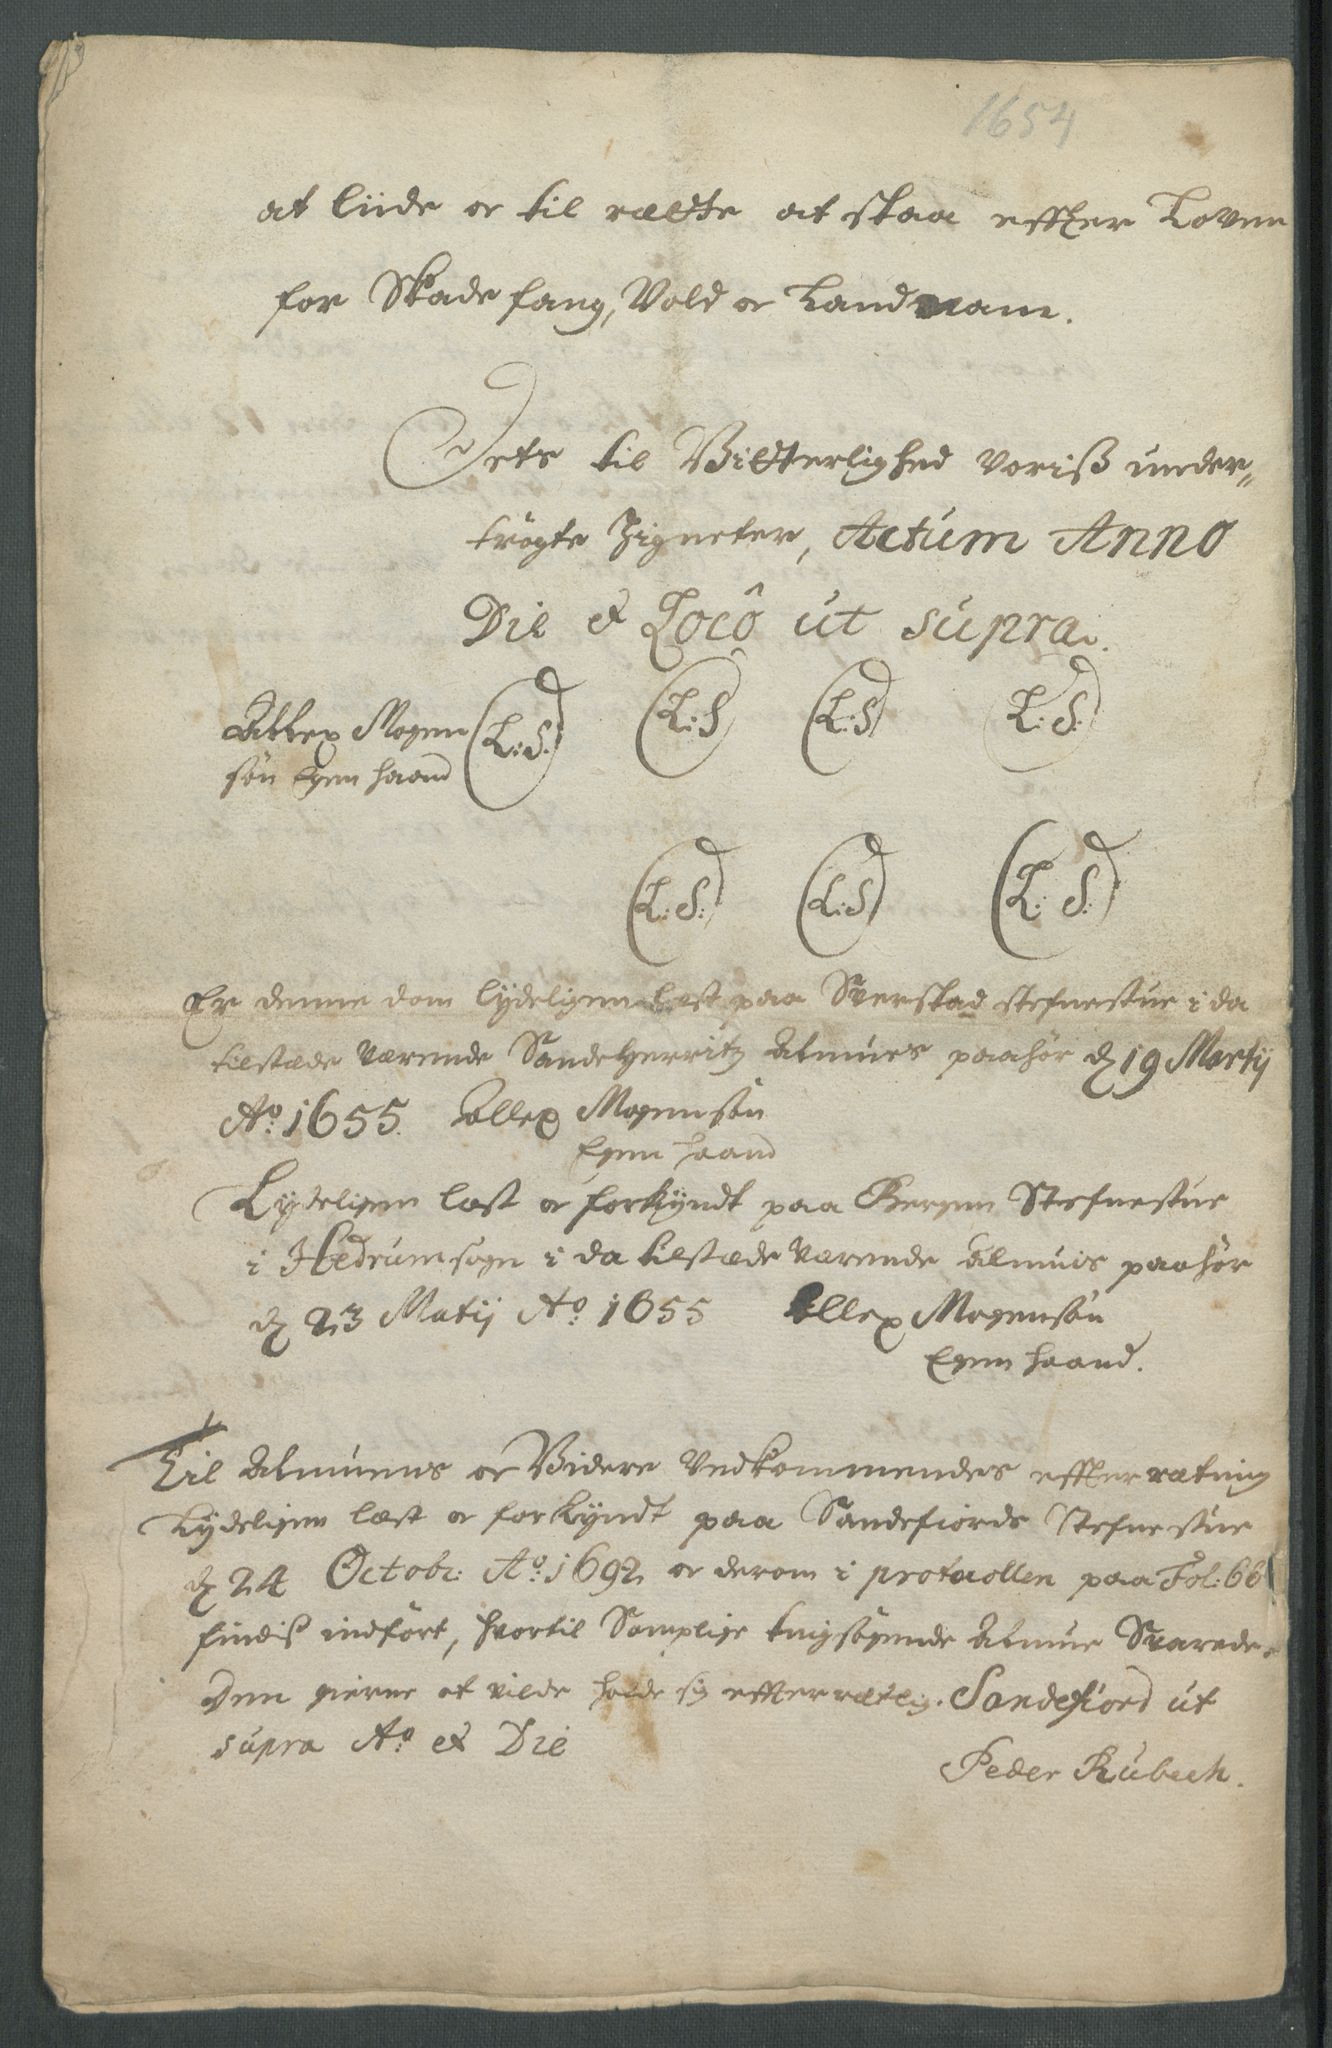 1654
at liide oc til rætte at staa effter Loven
for Skadefang, Vold oc Landnam.
Dets til Vitterlighed voriß under„
trögte Zigneter, Actum Anno
Die & Locô ut supra.
Allex Mogen (L:S.) (L:S) (L:S) (L:S.)
sön Egen haand
(L:S:) (L:S) (L:S:)
Er denne dom lydeligen læst paa Sverstad stefnestue i da
tilstæde værende Sandeherritz Almues paahör d 19 Martij
Ao: 1655. Allex Mogensön
Egen haand
Lydeligen læst oc forkyndt paa Bergen Stefnestue
i Hedrum sogn i da tilstæde værende almuis paahör
d 23 Matij Ao: 1655 Allex Mogensön
Egen haand.
Til Almuens oc Videre Vedkommendes effterrætning
Lydeligen læst oc forkyndt paa Sandefiords Stefnestue
d 24 Octobr: Ao: 1692 oc derom i protocollen paa Fol: 66
findiß indfört, hvortil Samplige tingsögende Almue Svarede
Den gierne at vilde holde sig effterrætlig. Sandefiord ut
supra Ao: & Die
Peder Rubech.